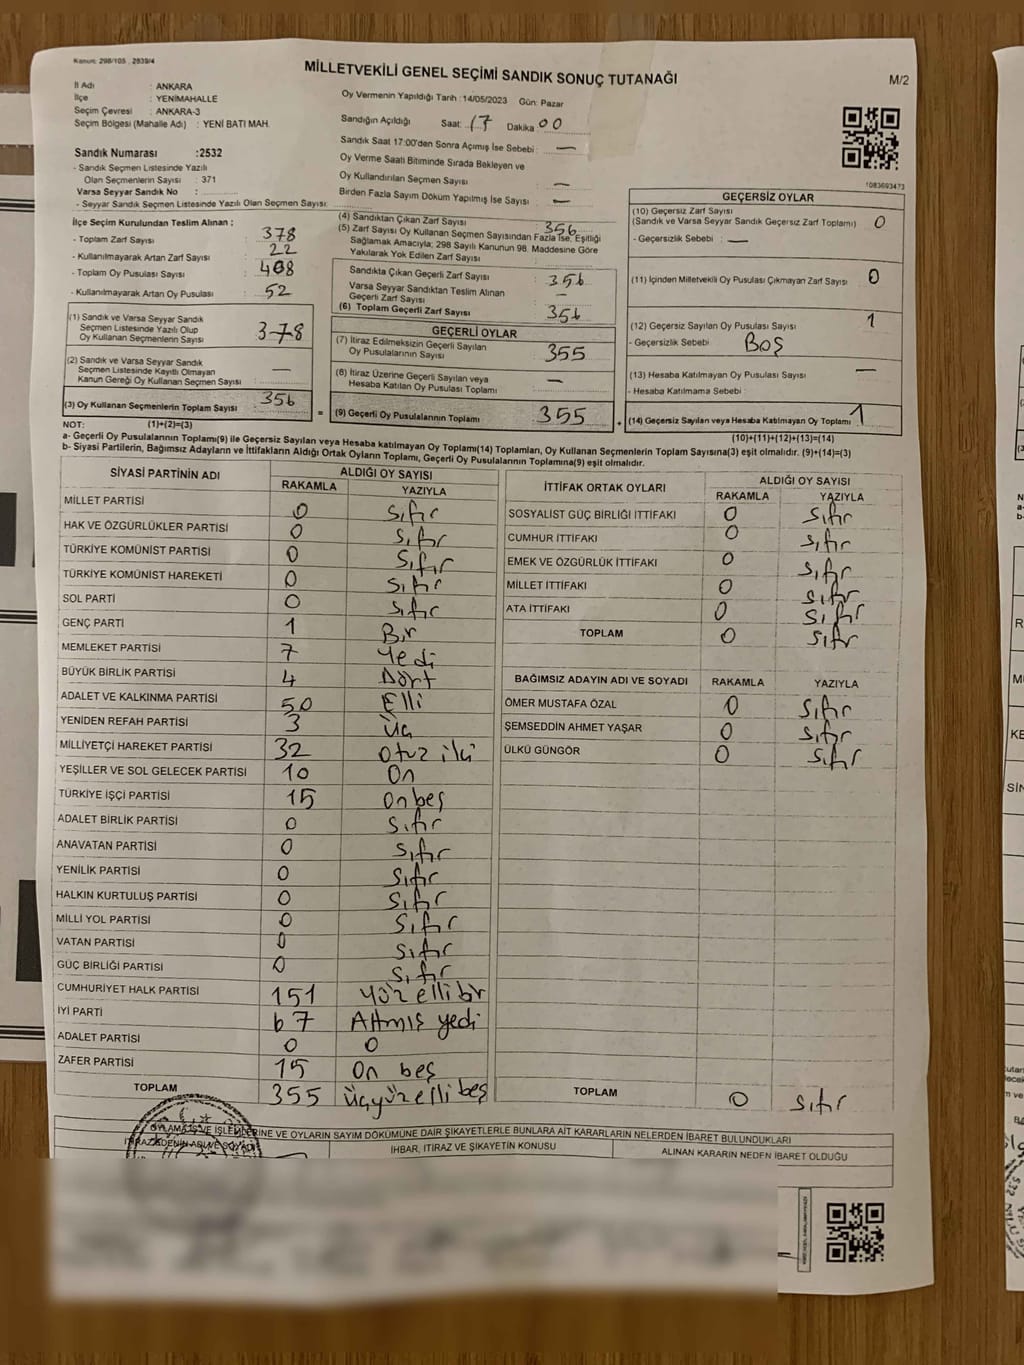 Kanun: 298/105 , 2839/4
MİLLETVEKİLİ GENEL SEÇİMİ SANDIK SONUÇ TUTANAĞI
M/2
İl Adı : ANKARA
İlçe : YENİMAHALLE
Seçim Çevresi : ANKARA-3
Seçim Bölgesi (Mahalle Adı) : YENİ BATI MAH.
Sandık Numarası :2532
- Sandık Seçmen Listesinde Yazılı
Olan Seçmenlerin Sayısı : 371
Varsa Seyyar Sandık No :
- Seyyar Sandık Seçmen Listesinde Yazılı Olan Seçmen Sayısı:
Oy Vermenin Yapıldığı Tarih :14/05/2023 Gün: Pazar
Sandığın Açıldığı Saat: 17 Dakika 00
Sandık Saat 17:00'den Sonra Açılmış İse Sebebi : —
Oy Verme Saati Bitiminde Sırada Bekleyen ve
Oy Kullandırılan Seçmen Sayısı : —
Birden Fazla Sayım Döküm Yapılmış İse Sayısı : —
1083693473
İlçe Seçim Kurulundan Teslim Alınan :
- Toplam Zarf Sayısı : 378
- Kullanılmayarak Artan Zarf Sayısı : 22
- Toplam Oy Pusulası Sayısı : 408
- Kullanılmayarak Artan Oy Pusulası : 52
(1) Sandık ve Varsa Seyyar Sandık
Seçmen Listesinde Yazılı Olup
Oy Kullanan Seçmenlerin Sayısı : 378
(2) Sandık ve Varsa Seyyar Sandık
Seçmen Listesinde Kayıtlı Olmayan
Kanun Gereği Oy Kullanan Seçmen Sayısı : —
(3) Oy Kullanan Seçmenlerin Toplam Sayısı : 356
(4) Sandıktan Çıkan Zarf Sayısı : 356
(5) Zarf Sayısı Oy Kullanan Seçmen Sayısından Fazla İse, Eşitliği
Sağlamak Amacıyla; 298 Sayılı Kanunun 98. Maddesine Göre
Yakılarak Yok Edilen Zarf Sayısı :
Sandıkta Çıkan Geçerli Zarf Sayısı : 356
Varsa Seyyar Sandıktan Teslim Alınan
Geçerli Zarf Sayısı : —
(6) Toplam Geçerli Zarf Sayısı : 356
GEÇERLİ OYLAR
(7) İtiraz Edilmeksizin Geçerli Sayılan
Oy Pusulalarının Sayısı : 355
(8) İtiraz Üzerine Geçerli Sayılan veya
Hesaba Katılan Oy Pusulası Toplamı : —
= (9) Geçerli Oy Pusulalarının Toplamı : 355
GEÇERSİZ OYLAR
(10) Geçersiz Zarf Sayısı
(Sandık ve Varsa Seyyar Sandık Geçersiz Zarf Toplamı) : 0
- Geçersizlik Sebebi : —
(11) İçinden Milletvekili Oy Pusulası Çıkmayan Zarf Sayısı : 0
(12) Geçersiz Sayılan Oy Pusulası Sayısı : 1
- Geçersizlik Sebebi : Boş
(13) Hesaba Katılmayan Oy Pusulası Sayısı : —
- Hesaba Katılmama Sebebi :
+ (14) Geçersiz Sayılan veya Hesaba Katılmayan Oy Toplamı : 1
NOT: (1)+(2)=(3)
(10)+(11)+(12)+(13)=(14)
a- Geçerli Oy Pusulalarının Toplamı(9) ile Geçersiz Sayılan veya Hesaba katılmayan Oy Toplamı(14) Toplamları, Oy Kullanan Seçmenlerin Toplam Sayısına(3) eşit olmalıdır. (9)+(14)=(3)
b- Siyasi Partilerin, Bağımsız Adayların ve İttifakların Aldığı Ortak Oyların Toplamı, Geçerli Oy Pusulalarının Toplamına(9) eşit olmalıdır.
SİYASİ PARTİNİN ADI ALDIĞI OY SAYISI
RAKAMLA YAZIYLA
MİLLET PARTİSİ 0 Sıfır
HAK VE ÖZGÜRLÜKLER PARTİSİ 0 Sıfır
TÜRKİYE KOMÜNİST PARTİSİ 0 Sıfır
TÜRKİYE KOMÜNİST HAREKETİ 0 Sıfır
SOL PARTİ 0 Sıfır
GENÇ PARTİ 1 Bir
MEMLEKET PARTİSİ 7 Yedi
BÜYÜK BİRLİK PARTİSİ 4 Dört
ADALET VE KALKINMA PARTİSİ 50 Elli
YENİDEN REFAH PARTİSİ 3 Üç
MİLLİYETÇİ HAREKET PARTİSİ 32 Otuz iki
YEŞİLLER VE SOL GELECEK PARTİSİ 10 On
TÜRKİYE İŞÇİ PARTİSİ 15 Onbeş
ADALET BİRLİK PARTİSİ 0 Sıfır
ANAVATAN PARTİSİ 0 Sıfır
YENİLİK PARTİSİ 0 Sıfır
HALKIN KURTULUŞ PARTİSİ 0 Sıfır
MİLLİ YOL PARTİSİ 0 Sıfır
VATAN PARTİSİ 0 Sıfır
GÜÇ BİRLİĞİ PARTİSİ 0 Sıfır
CUMHURİYET HALK PARTİSİ 151 Yüz elli bir
İYİ PARTİ 67 Altmış yedi
ADALET PARTİSİ 0 0
ZAFER PARTİSİ 15 On beş
TOPLAM 355 Üçyüz elli beş
İTTİFAK ORTAK OYLARI ALDIĞI OY SAYISI
RAKAMLA YAZIYLA
SOSYALİST GÜÇ BİRLİĞİ İTTİFAKI 0 Sıfır
CUMHUR İTTİFAKI 0 Sıfır
EMEK VE ÖZGÜRLÜK İTTİFAKI 0 Sıfır
MİLLET İTTİFAKI 0 Sıfır
ATA İTTİFAKI 0 Sıfır
TOPLAM 0 Sıfır
BAĞIMSIZ ADAYIN ADI VE SOYADI RAKAMLA YAZIYLA
ÖMER MUSTAFA ÖZAL 0 Sıfır
ŞEMSEDDİN AHMET YAŞAR 0 Sıfır
ÜLKÜ GÜNGÖR 0 Sıfır
TOPLAM 0 Sıfır
OYLAMA İŞ VE İŞLEMLERİNE VE OYLARIN SAYIM DÖKÜMÜNE DAİR ŞİKAYETLERLE BUNLARA AİT KARARLARIN NELERDEN İBARET BULUNDUKLARI
İTİRAZ EDENİN ADI VE SOYADI İHBAR, İTİRAZ VE ŞİKAYETİN KONUSU ALINAN KARARIN NEDEN İBARET OLDUĞU